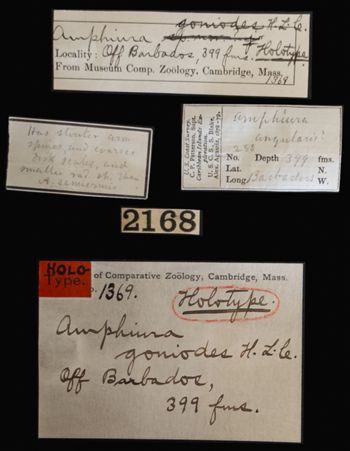 goniodes H.L.C.
Amphiura
Locality: Off Barbados, 399 fms. Holotype
From Museum Comp. Zoölogy, Cambridge, Mass.
1369
Has stouter arm
spines, and coarser
disk scales, and
smaller rad. sh. than
A. semiermis
U. S. Coast Survey,
C. P. Patterson, Supt.
Caribbean Islands Exploration.
U. S. C. S. S. Blake,
Alex. Agassiz, 1878-79.
Amphiura
angularis?
No. Depth 399 fms.
Lat. N.
Long Barbados W.
2168
HOLO-
TYPE.
of Comparative Zoölogy, Cambridge, Mass.
o. 1369.
Holotype.
Amphiura
goniodes H.L.C.
Off Barbados,
399 fms.